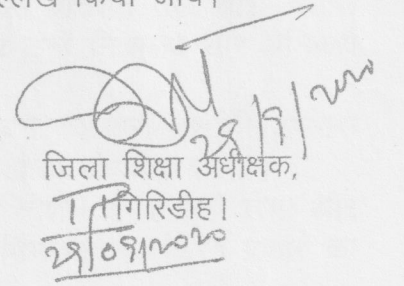 किया जाय।
29/9/2020
जिला शिक्षा अधीक्षक,
गिरिडीह।
29/09/2020